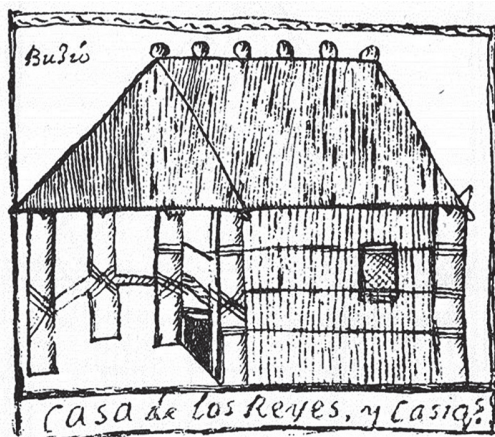 Buhío
Casa de los Reyes, y Casiqs.